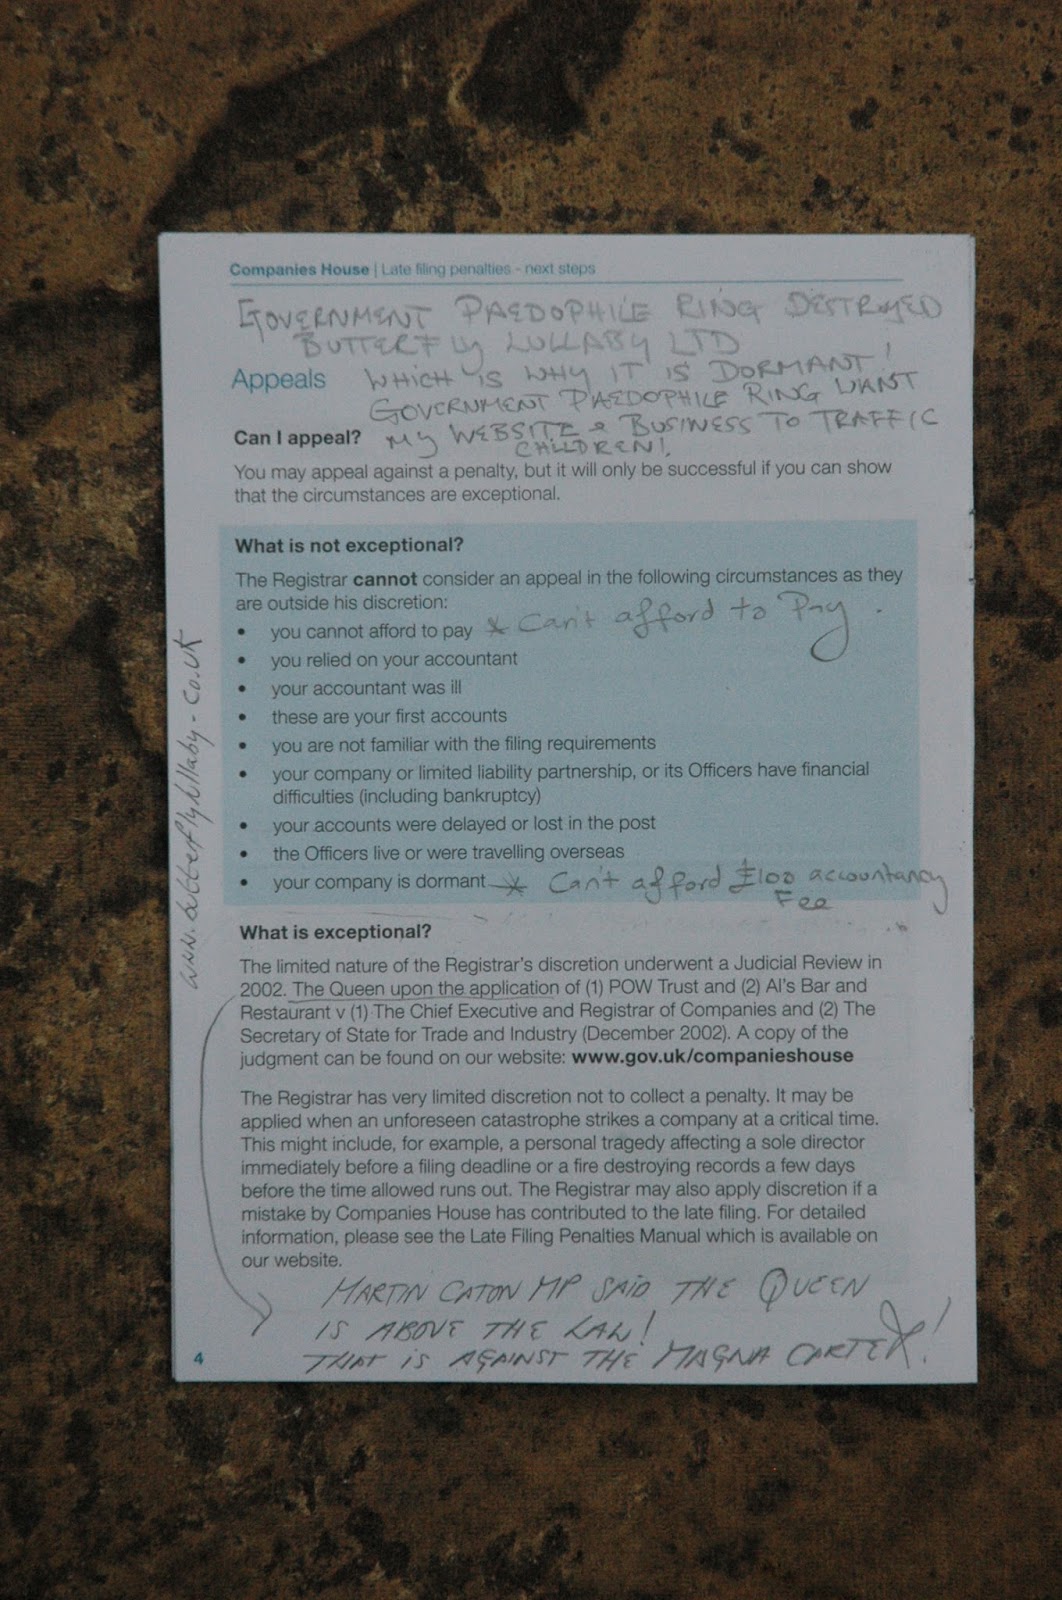 Companies House | Late filing penalties - next steps
GOVERNMENT PAEDOPHILE RING DESTROYED
BUTTERFLY LULLABY LTD
WHICH IS WHY IT IS DORMANT!
Appeals
GOVERNMENT PAEDOPHILE RING WANT
MY WEBSITE & BUSINESS TO TRAFFIC
CHILDREN!
Can I appeal?
You may appeal against a penalty, but it will only be successful if you can show
that the circumstances are exceptional.
What is not exceptional?
The Registrar cannot consider an appeal in the following circumstances as they
are outside his discretion:
• you cannot afford to pay * Can't afford to Pay.
• you relied on your accountant
• your accountant was ill
• these are your first accounts
• you are not familiar with the filing requirements
• your company or limited liability partnership, or its Officers have financial
difficulties (including bankruptcy)
• your accounts were delayed or lost in the post
• the Officers live or were travelling overseas
• your company is dormant * Can't afford £100 accountancy
Fee
www.butterflylullaby.co.uk
What is exceptional?
The limited nature of the Registrar's discretion underwent a Judicial Review in
2002. The Queen upon the application of (1) POW Trust and (2) Al's Bar and
Restaurant v (1) The Chief Executive and Registrar of Companies and (2) The
Secretary of State for Trade and Industry (December 2002). A copy of the
judgment can be found on our website: www.gov.uk/companieshouse
The Registrar has very limited discretion not to collect a penalty. It may be
applied when an unforeseen catastrophe strikes a company at a critical time.
This might include, for example, a personal tragedy affecting a sole director
immediately before a filing deadline or a fire destroying records a few days
before the time allowed runs out. The Registrar may also apply discretion if a
mistake by Companies House has contributed to the late filing. For detailed
information, please see the Late Filing Penalties Manual which is available on
our website.
MARTIN CATON MP SAID THE QUEEN
IS ABOVE THE LAW!
THAT IS AGAINST THE MAGNA CARTER!
4